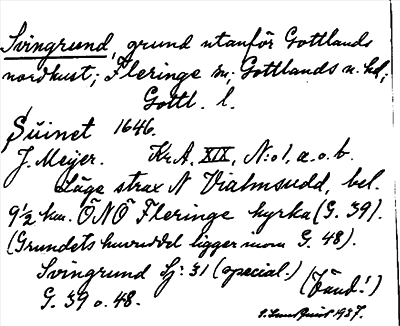 Svingrund, grund utanför Gottlands
nordkust; Fleringe sn; Gottlands n. hd;
Gottl. l.
Suinet 1646.
J. Meijer. Kr.A. XIX, N:o 1, a.o.b.
Läge strax N Vialmsudd, bel.
9½ km. ÖNÖ Fleringe kyrka (G. 39).
(Grundets huvuddel ligger inom G. 48).
Svingrund Sj: 31 (special.)
(Vänd!)
G. 39 o. 48.
1937.